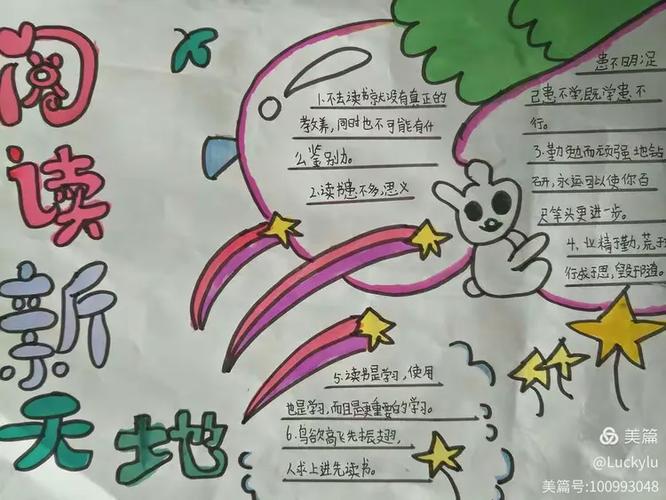 阅
读
新
天地
1.不去读书就没有真正的
教养,同时也不可能有什
么鉴别力。
2.读书患不多,思义
患不明;足
己患不学,既学患不
行。
3.勤勉而顽强地钻
研,永远可以使你百
尺竿头更进一步。
4.业精于勤,荒于
行成于思,毁于随。
5.读书是学习,使用
也是学习,而且是更重要的学习。
6.鸟欲高飞先振翅,
人求上进先读书。
美篇
@Luckylu
美篇号:100993048